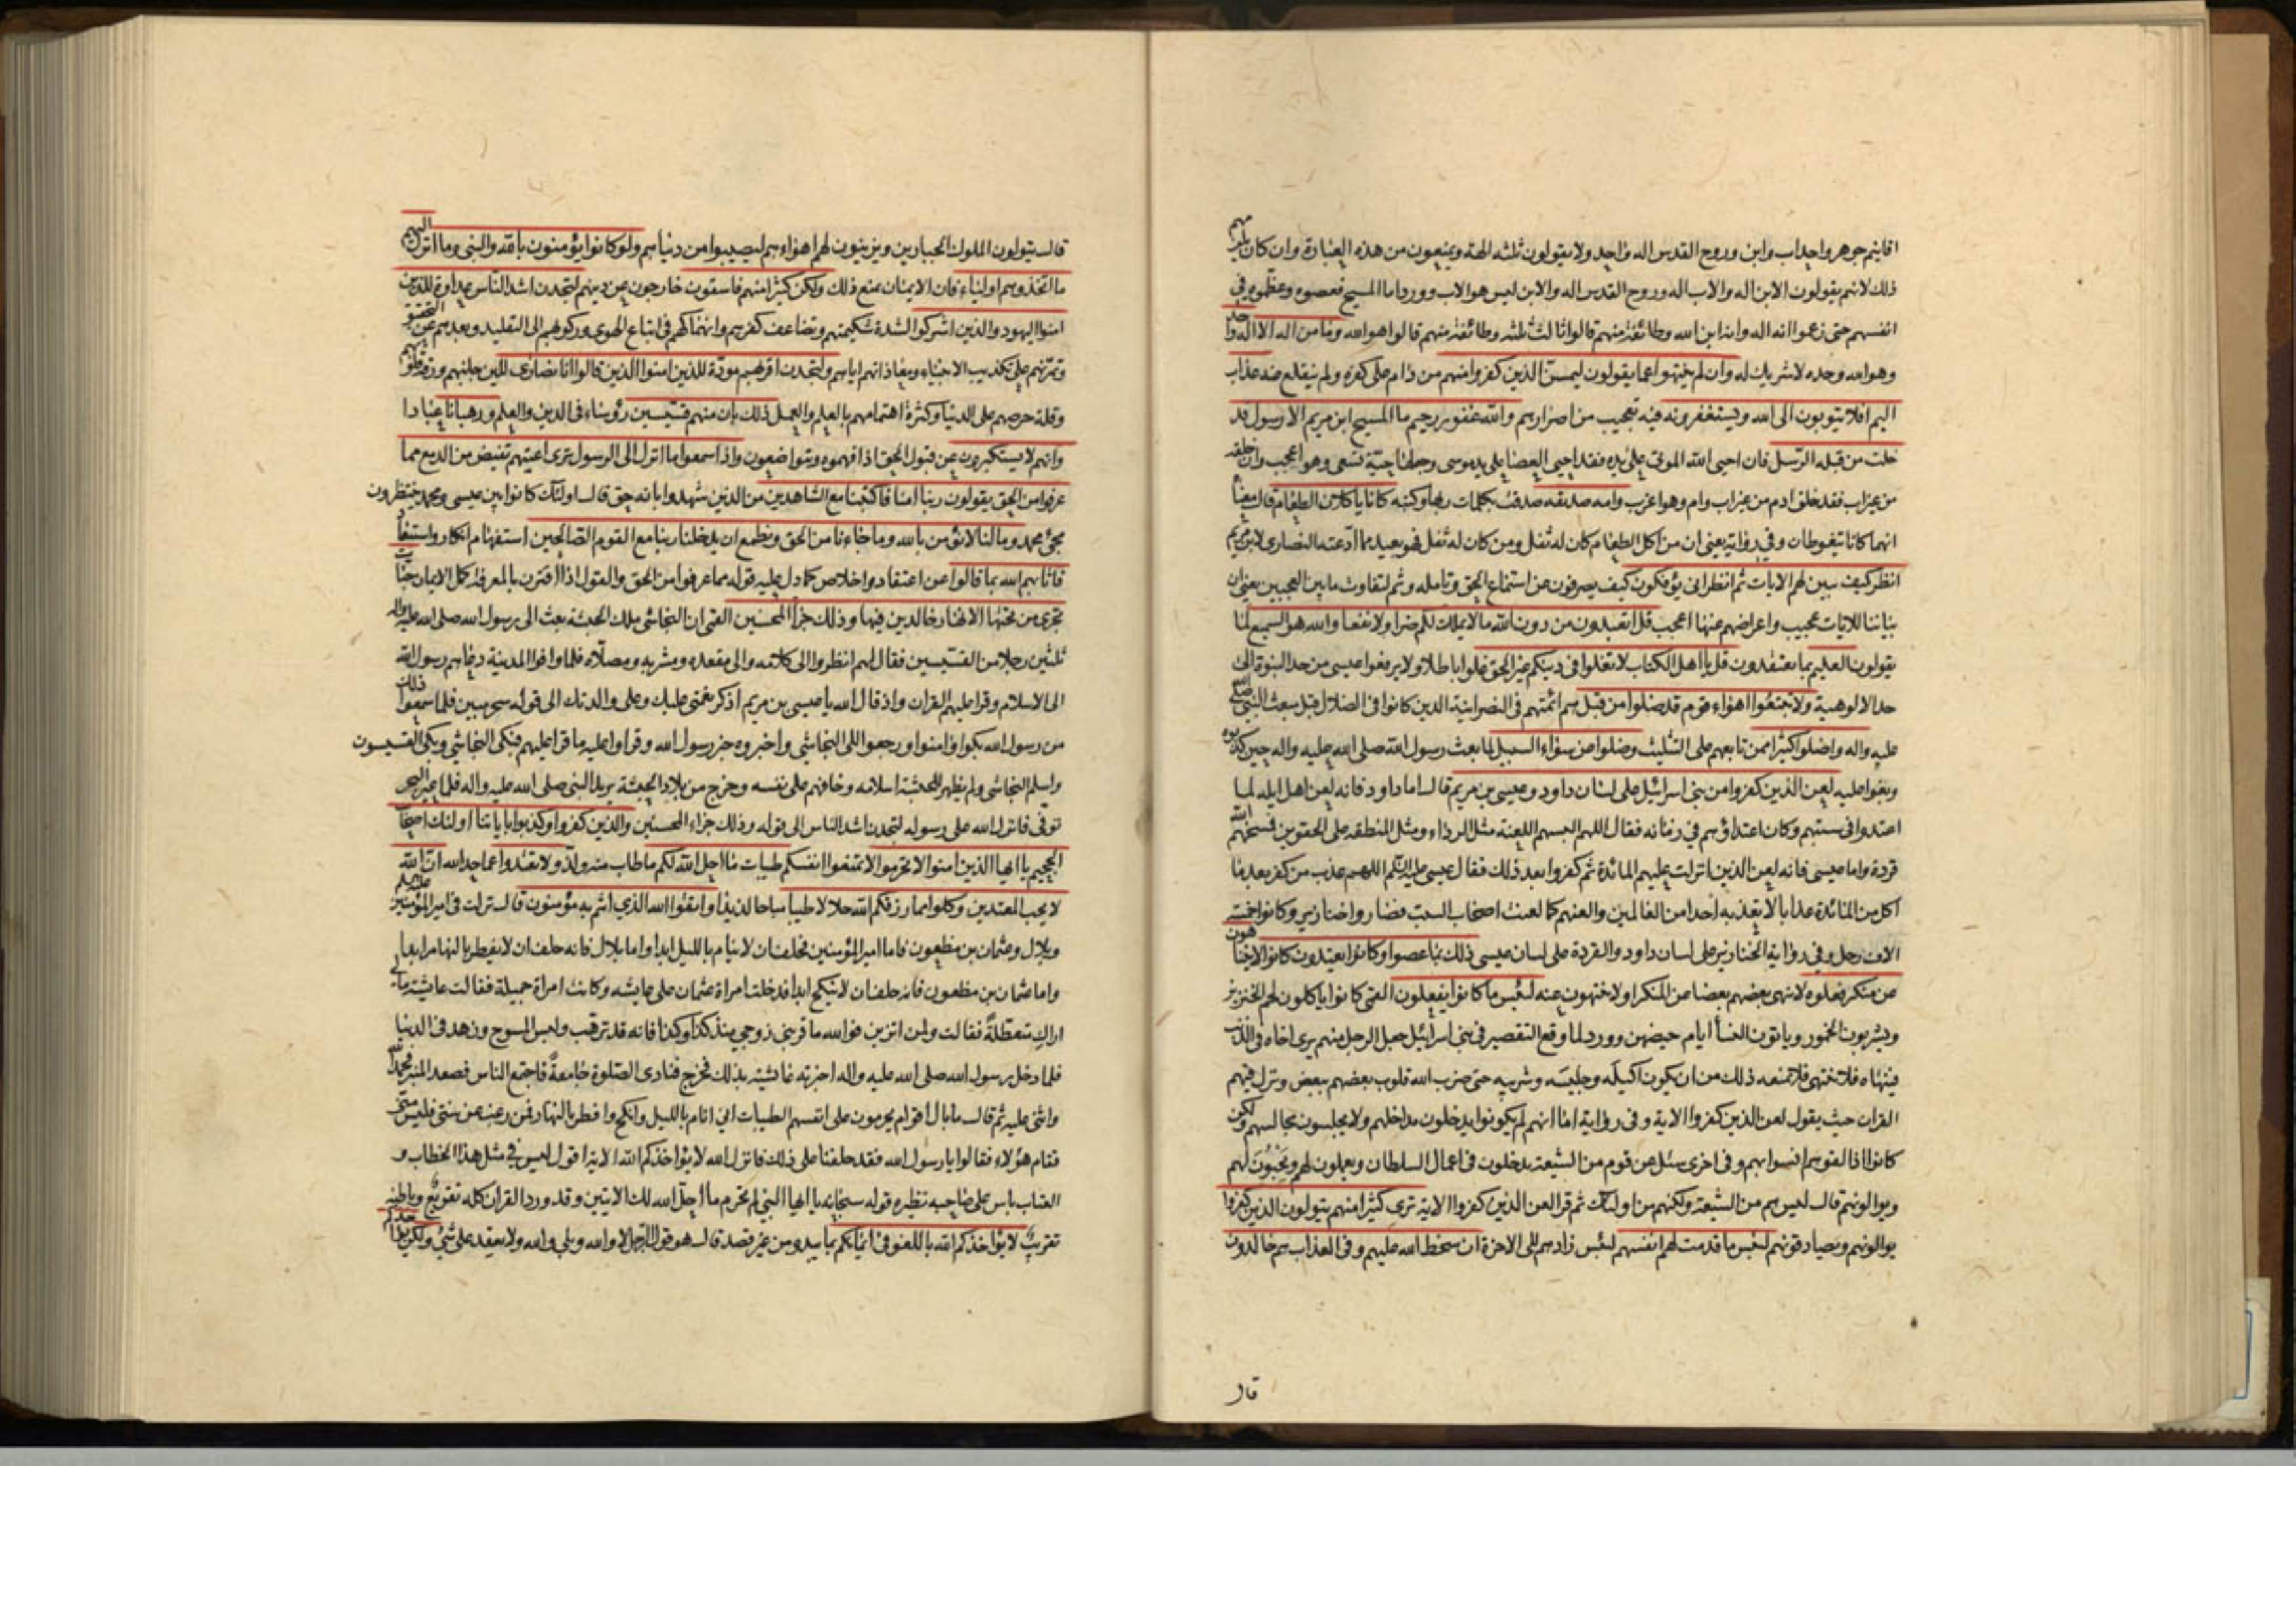 اقانيم جوهر واحد اب وابن وروح القدس اله واحد ولا يقولون ثلثه الهة ويمنعون من هذه العبارة وان كان يلزمهم
ذلك لانهم يقولون الابن اله والاب اله وروح القدس اله والابن ليس هو الاب وورد اما المسيح فعصوه وعظموه في
انفسهم حتى زعموا انه اله وانه ابن الله وطائفة منهم قالوا ثالث ثلثه وطائفة منهم قالوا هو الله وما من اله الا اله واحد
وهو الله وحده لا شريك له وان لم ينتهوا عما يقولون ليمسن الذين كفروا منهم من دام على كفره ولم ينقلع عنه عذاب
اليم افلا يتوبون الى الله ويستغفرونه فيه تعجيب من اصرارهم والله غفور رحيم ما المسيح ابن مريم الا رسول قد
خلت من قبله الرسل فان احيى الله الموتى على يده فقد احيى العصا على يد موسى وجعلها حية تسعى وهو اعجب وان خلقه
من غير اب فقد خلق ادم من غير اب وام وهو اغرب وامه صديقه صدقت بكلمات ربها وكتبه كانا ياكلان الطعام قال معناه
انهما كانا يتغوطان وفي رواية يعني ان من اكل الطعام كان له ثفل ومن كان له ثفل فهو بعيد مما ادعته النصارى لابن مريم
انظر كيف نبين لهم الايات ثم انظر انى يؤفكون كيف يصرفون عن استماع الحق وتامله وثم لتفاوت ما بين العجبين يعني ان
بياننا للايات عجيب واعراضهم عنها اعجب قل اتعبدون من دون الله ما لا يملك لكم ضرا ولا نفعا والله هو السميع لما
يقولون العليم بما يعتقدون قل يا اهل الكتاب لا تغلوا في دينكم غير الحق غلوا باطلا ولا يرفعوا عيسى من حد النبوة الى
حد الالوهية ولا تتبعوا اهواء قوم قد ضلوا من قبل هم ائمتهم في النصرانية الذين كانوا في الضلال قبل مبعث النبي صلى الله
عليه واله واضلوا كثيرا ممن تابعهم على التثليث وضلوا عن سواء السبيل لما بعث رسول الله صلى الله عليه واله حين كذبوه
وبغوا عليه لعن الذين كفروا من بني اسرائيل على لسان داود وعيسى بن مريم قال اما داود فانه لعن اهل ايله لما
اعتدوا في سبتهم وكان اعتداؤهم في زمانه فقال اللهم البسهم اللعنة مثل الرداء ومثل المنطقه على الحقوين فمسخهم الله
قردة واما عيسى فانه لعن الذين انزلت عليهم المائدة ثم كفروا بعد ذلك فقال عيسى عليه السلام اللهم عذب من كفر بعد ما
اكل من المائدة عذابا لا تعذبه احدا من العالمين والعنهم كما لعنت اصحاب السبت فصاروا خنازير وكانوا خمسة
الاف رجل وفي رواية الخنازير على لسان داود والقردة على لسان عيسى ذلك بما عصوا وكانوا يعتدون كانوا لا يتناهون
عن منكر فعلوه لا ينهى بعضهم بعضا عن المنكر او لا ينتهون عنه لبئس ما كانوا يفعلون القمي كانوا ياكلون لحم الخنزير
ويشربون الخمور وياتون النساء ايام حيضهن وورد لما وقع التقصير في بني اسرائيل جعل الرجل منهم يرى اخاه في الذنب
فينهاه فلا ينتهي فلا يمنعه ذلك من ان يكون اكيله وجليسه وشريبه حتى ضرب الله قلوب بعضهم ببعض ونزل فيهم
القران حيث يقول لعن الذين كفروا الاية وفي رواية اما انهم لم يكونوا يدخلون مداخلهم ولا يجلسون مجالسهم ولكن
كانوا اذا لقوهم انسوا بهم وفي اخرى سئل عن قوم من الشيعة يدخلون في اعمال السلطان ويعملون لهم ويحبون لهم
ويوالونهم قال ليس هم من الشيعة ولكنهم من اولئك ثم قرا لعن الذين كفروا الاية ترى كثيرا منهم يتولون الذين كفروا
يوالونهم ويصادقونهم لبئس ما قدمت لهم انفسهم لبئس زادهم الى الاخرة ان سخط الله عليهم وفي العذاب هم خالدون
قال
قال يتولون الملوك الجبارين ويزينون لهم اهواءهم ليصيبوا من دنياهم ولو كانوا يؤمنون بالله والنبي وما انزل اليهم
ما اتخذوهم اولياء فان الايمان يمنع ذلك ولكن كثيرا منهم فاسقون خارجون عن دينهم لتجدن اشد الناس عداوة للذين
امنوا اليهود والذين اشركوا لشدة شكيمتهم وتضاعف كفرهم وانهماكهم في اتباع الهوى وركونهم الى التقليد وبعدهم عن التحقيق
وتمرنهم على تكذيب الانبياء ومعاداتهم اياهم ولتجدن اقربهم مودة للذين امنوا الذين قالوا انا نصارى للين جانبهم ورقة قلوبهم
وقلة حرصهم على الدنيا وكثرة اهتمامهم بالعلم والعمل ذلك بان منهم قسيسين رؤساء في الدين والعلم ورهبانا عبادا
وانهم لا يستكبرون عن قبول الحق اذا فهموه ويتواضعون واذا سمعوا ما انزل الى الرسول ترى اعينهم تفيض من الدمع مما
عرفوا من الحق يقولون ربنا امنا فاكتبنا مع الشاهدين من الذين شهدوا بانه حق قال اولئك كانوا بين عيسى ومحمد ينتظرون
مجئ محمد وما لنا لا نؤمن بالله وما جاءنا من الحق ونطمع ان يدخلنا ربنا مع القوم الصالحين استفهام انكار واستبعاد
فاثابهم الله بما قالوا عن اعتقاد واخلاص كما دل عليه قوله مما عرفوا من الحق والقول اذا اقترن بالمعرفة كمل الايمان جنات
تجري من تحتها الانهار خالدين فيها وذلك جزاء المحسنين القمي ان النجاشي ملك الحبشة بعث الى رسول الله صلى الله عليه واله
ثلثين رجلا من القسيسين فقال لهم انظروا الى كلامه والى مقعده ومشربه ومصلاه فلما وافوا المدينة دعاهم رسول الله
الى الاسلام وقرا عليهم القران واذ قال الله يا عيسى بن مريم اذكر نعمتي عليك وعلى والدتك الى قوله سحر مبين فلما سمعوا ذلك
من رسول الله بكوا وامنوا ورجعوا الى النجاشي واخبروه خبر رسول الله وقراوا عليه ما قرا عليهم فبكى النجاشي وبكى القسيسون
واسلم النجاشي ولم يظهر للحبشة اسلامه وخافهم على نفسه وخرج من بلاد الحبشة يريد النبي صلى الله عليه واله فلما عبر البحر
توفي فانزل الله على رسوله لتجدن اشد الناس الى قوله وذلك جزاء المحسنين والذين كفروا وكذبوا باياتنا اولئك اصحاب
الجحيم يا ايها الذين امنوا لا تحرموا لا تمنعوا انفسكم طيبات ما احل الله لكم ما طاب منه ولذ ولا تعتدوا عما حد الله ان الله
لا يحب المعتدين وكلوا مما رزقكم الله حلالا طيبا مباحا لذيذا واتقوا الله الذي انتم به مؤمنون قال نزلت في امير المؤمنين عليه السلم
وبلال وعثمان بن مظعون فاما امير المؤمنين فحلف ان لا ينام بالليل ابدا واما بلال فانه حلف ان لا يفطر بالنهار ابدا
واما عثمان بن مظعون فانه حلف ان لا ينكح ابدا فدخلت امراة عثمان على عايشه وكانت امراة جميلة فقالت عايشة مالي
اراك متعطلة فقالت ولمن اتزين فوالله ما قربني زوجي منذ كذا وكذا فانه قد ترهب ولبس المسوح وزهد في الدنيا
فلما دخل رسول الله صلى الله عليه واله اخبرته عائشة بذلك فخرج فنادى الصلوة جامعة فاجتمع الناس فصعد المنبر فحمد الله
واثنى عليه ثم قال ما بال اقوام يحرمون على انفسهم الطيبات اني انام بالليل وانكح وافطر بالنهار فمن رغب عن سنتي فليس مني
فقام هؤلاء فقالوا يا رسول الله فقد حلفنا على ذلك فانزل الله لا يؤاخذكم الله الاية اقول ليس في مثل هذا الخطاب و
العتاب باس على صاحبه نظيره قوله سبحانه يا ايها النبي لم تحرم ما احل الله لك الايتين وقد ورد القران كله تقريع وباطنه
تقريب لا يؤاخذكم الله باللغو في ايمانكم بما يبدو من غير قصد قال هو قول الرجل لا والله وبلى والله ولا يعقد على شئ ولكن يؤاخذكم